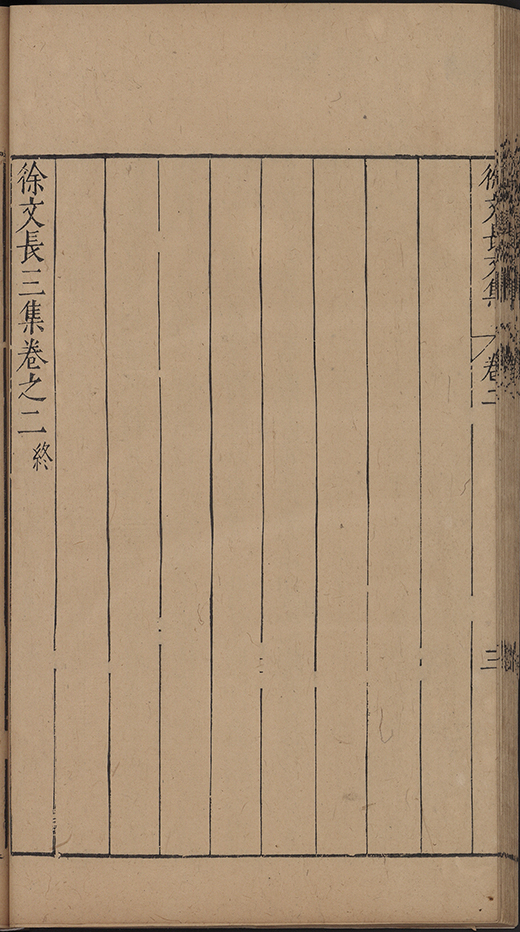 徐文長文集 卷二 三
徐文長三集卷之二終